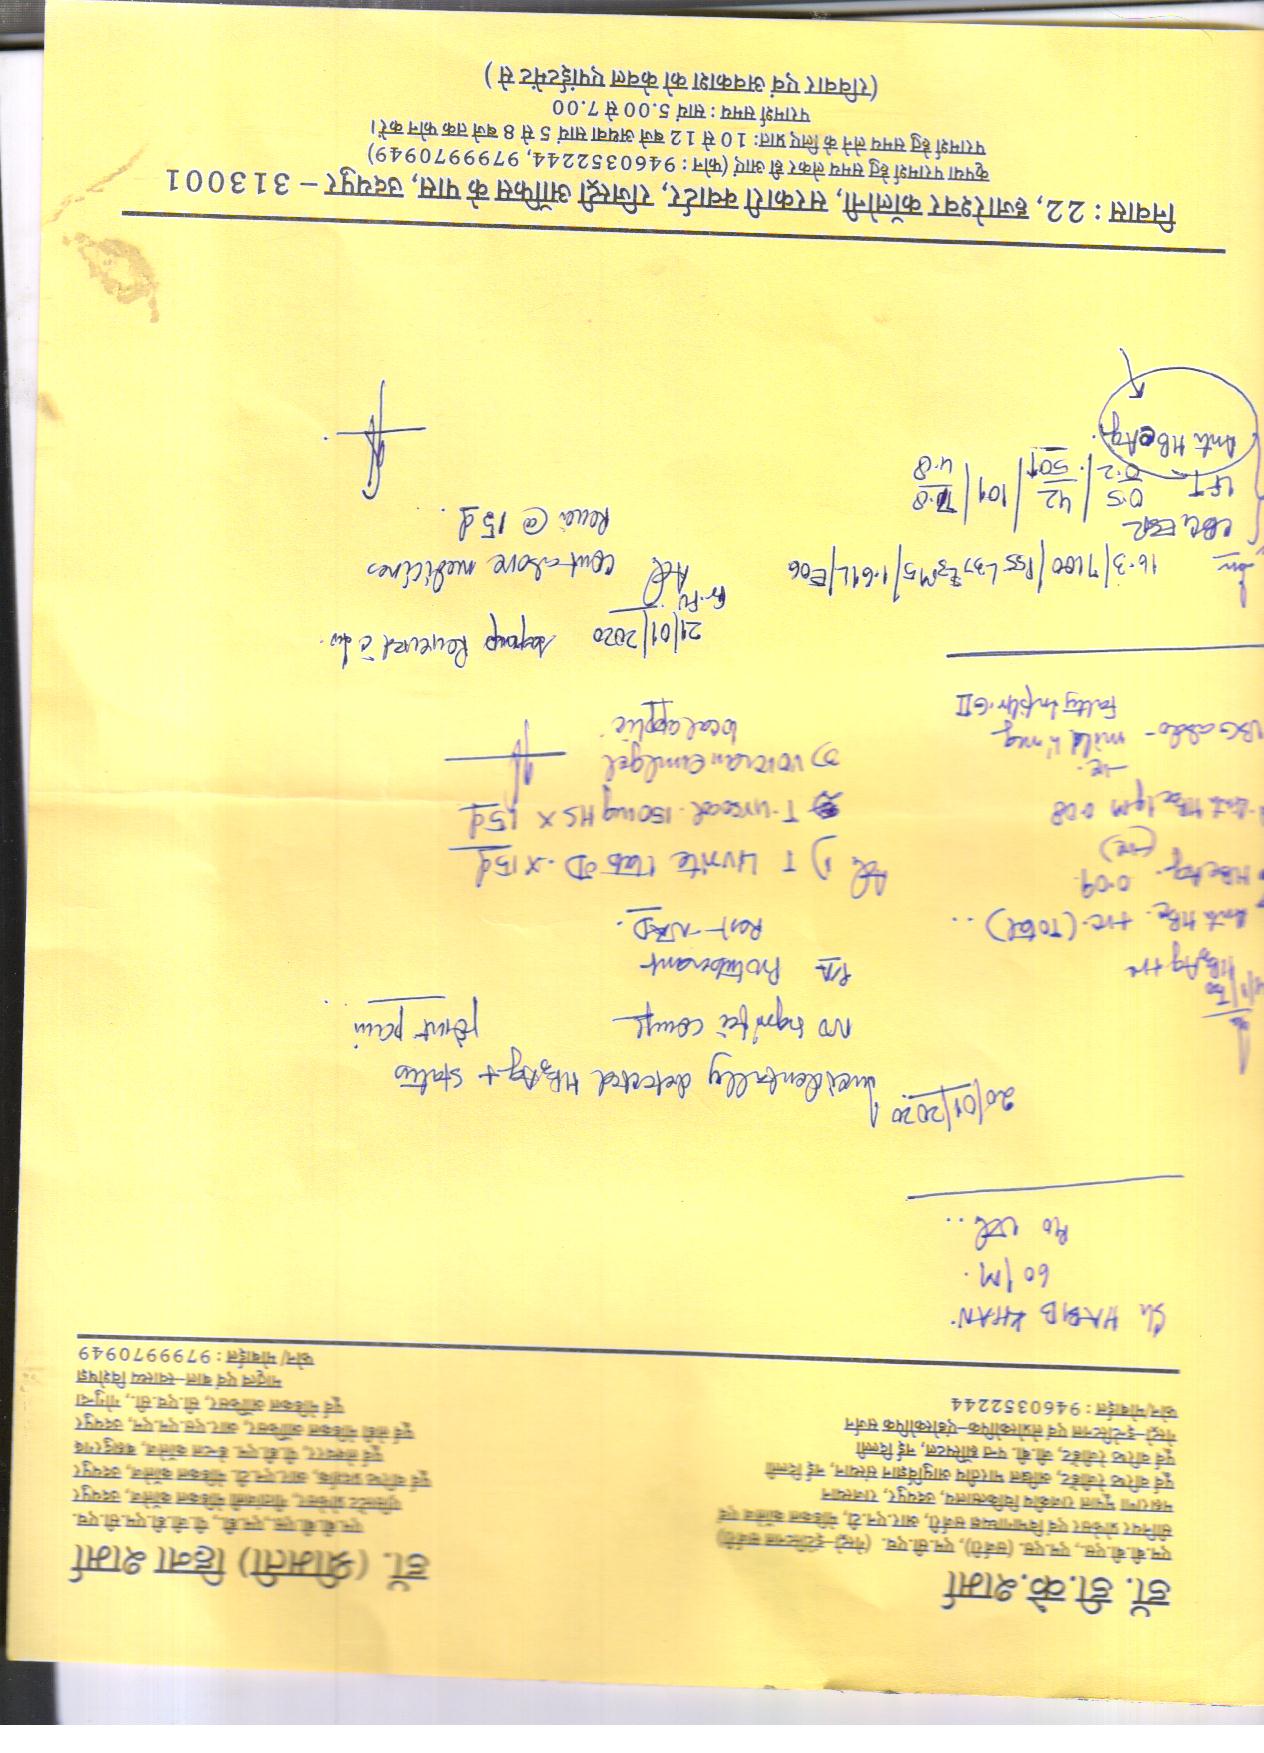 डॉ. डी.के.शर्मा
एम.बी.बी.एस., एम.एस. (सर्जरी), एम.सी.एच. (गेस्ट्रो-इन्टेस्टिनल सर्जरी)
सीनियर प्रोफेसर एवं विभागाध्यक्ष सर्जरी, आर.एन.टी. मेडिकल कॉलेज एवं
महाराणा भूपाल राजकीय चिकित्सालय, उदयपुर, राजस्थान
पूर्व वरिष्ठ रेजीडेंट, अखिल भारतीय आयुर्विज्ञान संस्थान, नई दिल्ली
पूर्व वरिष्ठ रेजीडेंट, जी.बी. पन्त हॉस्पिटल, नई दिल्ली
गेस्ट्रो-इन्टेस्टिनल एवं लेप्रोस्कोपिक-एंडोस्कोपिक सर्जन
फोन/मोबाईल : 9460352244
डॉ. (श्रीमती) हिना शर्मा
एम.बी.बी.एस.,एम.डी., पी.जी.डी.एम.सी.एच.
एसिस्टेंट प्रोफेसर, गीतांजली मेडिकल कॉलेज, उदयपुर
पूर्व वरिष्ठ प्रदर्शक, आर.एन.टी. मेडिकल कॉलेज, उदयपुर
पूर्व लेक्चरर, पी.डी.एम. डेन्टल कॉलेज, बहादुरगढ़
पूर्व लेडी मेडिकल ऑफिसर, आर.एस.एम.एम. उदयपुर
पूर्व मेडिकल ऑफिसर, सी.एच.सी., गोगुन्दा
मातृत्व एवं बाल-स्वास्थ्य विशेषज्ञ
फोन/मोबाईल : 9799970949
Sh HABIB KHAN
60/M.
R/o
20/01/2020 Incidentally detected HBsAg + status
No signifi compl joint pain
P/A Protuberant
Rest- NAD.
HBsAg +ve
Anti HBc. +ve. (Total)
HBeAg. 0.09
(-ve)
Anti HBc IgM 0.08
-ve.
USG abdo - mild h'meg
Fatty Infiltr. GII
Ad 1) T Livrite 1 tab OD. x 15d
2) T. Ursocol. 150mg HS x 15d
3) Voveran emulgel
local applic.
21/01/2020 Reviewed c inv.
Adv cont above medicines
Review @ 15d
Inv
16.3/7100/P55 L37 E3 M5/1.61L/E06
CBC, ESR
LFT 0.5/0.2 / 42/50↑ / 101 / 7.8/4.8
Anti HBeAg.
निवास : 22, हजारेश्वर कॉलोनी, सरकारी क्वार्टर, रजिस्ट्री ऑफिस के पास, उदयपुर – 313001
कृपया परामर्श हेतु समय लेकर ही आएं (फोन : 9460352244, 9799970949)
परामर्श हेतु समय लेने के लिए प्रातः 10 से 12 बजे अथवा सायं 5 से 8 बजे तक फोन करें।
परामर्श समय : सायं 5.00 से 7.00
(रविवार एवं अवकाश को केवल एपाईंटमेंट से )